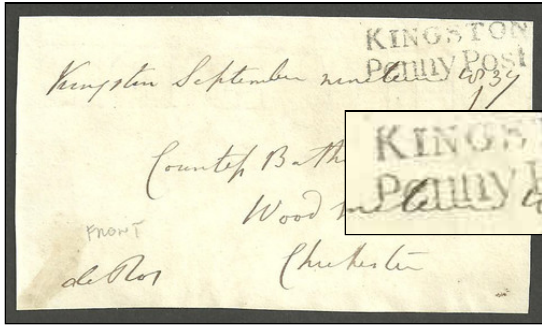 KINGSTON
Penny Post
Kingston September nineteen 1837
Countess Bath
Wood
Chichester
FRONT
de Ros
KINGS
Penny P